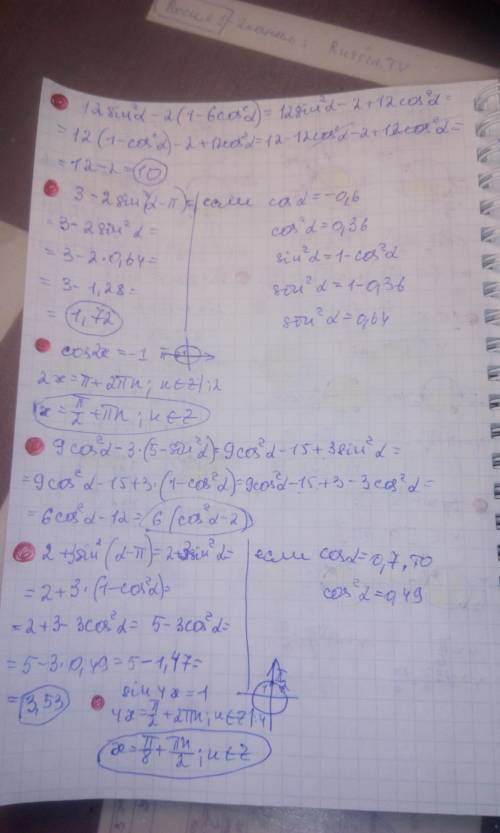 Россия 1 - канал: Russia.TV
12sin²α - 2(1-6cos²α) = 12sin²α - 2 + 12cos²α =
= 12(1-cos²α) - 2 + 12cos²α = 12 - 12cos²α - 2 + 12cos²α =
= 12 - 2 = 10
3 - 2sin²(α-π) = если cosα = -0,6
= 3 - 2sin²α = cos²α = 0,36
= 3 - 2·0,64 = sin²α = 1 - cos²α
= 3 - 1,28 = sin²α = 1 - 0,36
= 1,72 sin²α = 0,64
cos2x = -1
2x = π + 2πn; n∈Z |:2
x = π/2 + πn; n∈Z
9cos²α - 3·(5-sin²α) = 9cos²α - 15 + 3sin²α =
= 9cos²α - 15 + 3·(1-cos²α) = 9cos²α - 15 + 3 - 3cos²α =
= 6cos²α - 12 = 6(cos²α - 2)
2 + 3sin²(α-π) = 2+3sin²α = если cosα = 0,7, то
= 2 + 3·(1-cos²α) = cos²α = 0,49
= 2 + 3 - 3cos²α = 5 - 3cos²α =
= 5 - 3·0,49 = 5 - 1,47 =
= 3,53
sin4x = 1
4x = π/2 + 2πn; n∈Z |:4
x = π/8 + πn/2; n∈Z